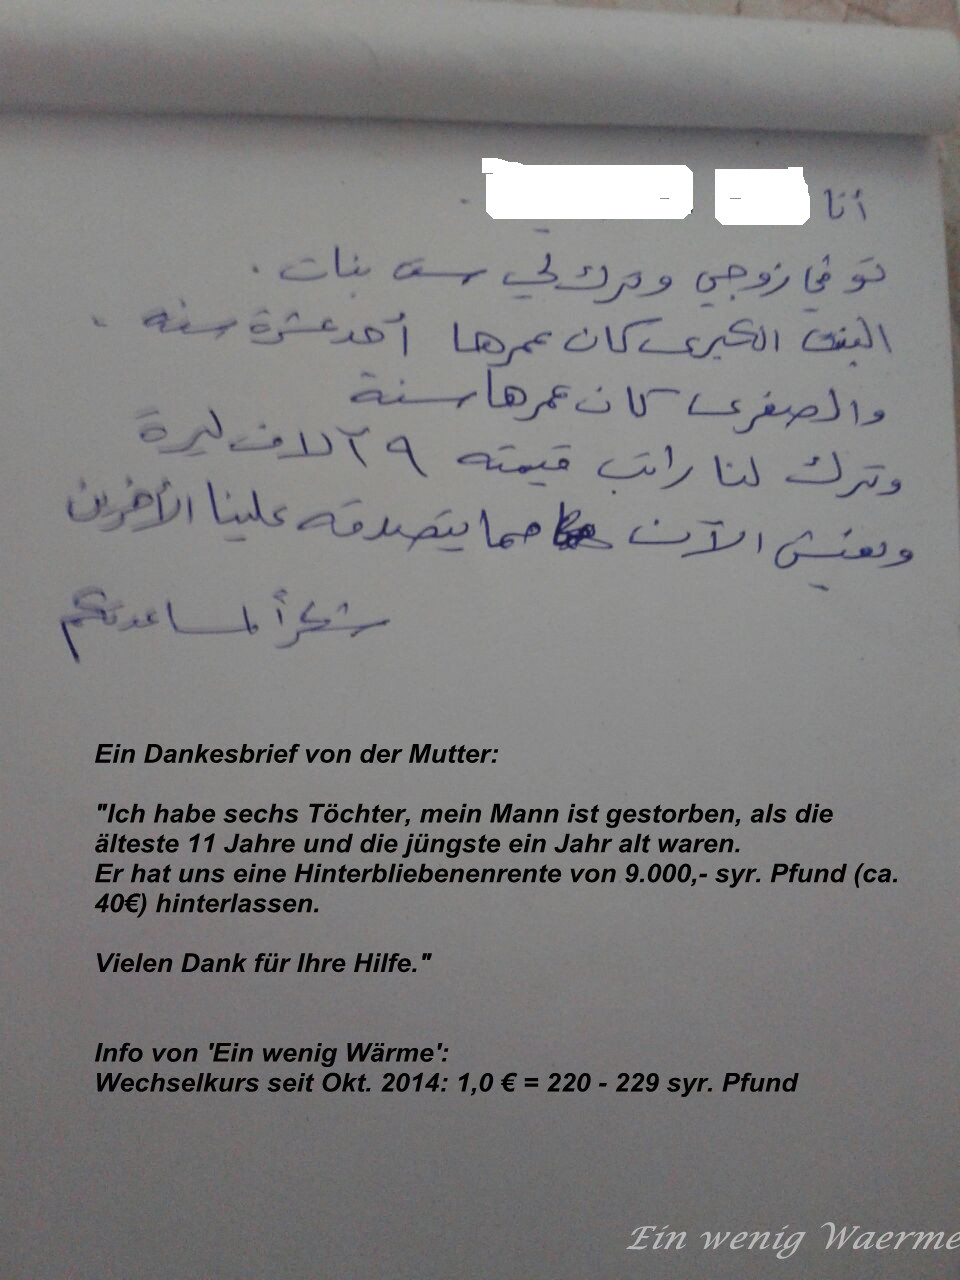 أنا
توفي زوجي وترك لي ست بنات.
البنت الكبرى كان عمرها أحد عشرة سنه.
والصغرى كان عمرها سنة
وترك لنا راتب قيمته ٩ آلاف ليرة
ونعيش الآن مما يتصدقه علينا الأخرين
شكراً لمساعدتكم
Ein Dankesbrief von der Mutter:
"Ich habe sechs Töchter, mein Mann ist gestorben, als die
älteste 11 Jahre und die jüngste ein Jahr alt waren.
Er hat uns eine Hinterbliebenenrente von 9.000,- syr. Pfund (ca.
40€) hinterlassen.
Vielen Dank für Ihre Hilfe."
Info von 'Ein wenig Wärme':
Wechselkurs seit Okt. 2014: 1,0 € = 220 - 229 syr. Pfund
Ein wenig Waerme